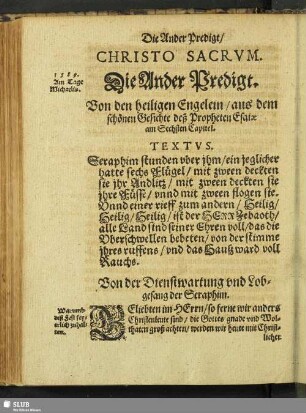 Die Ander Predigt/
CHRISTO SACRVM.
1589.
Am Tage
Michaelis.
Die Ander Predigt.
Von den heiligen Engelein/ aus dem
schönen Gesichte deß Propheten Esaiæ
am Sechsten Capitel.
TEXTVS.
Seraphim stunden vber jhm/ ein jeglicher
hatte sechs Flügel/ mit zween deckten
sie jhr Andlitz/ mit zween deckten sie
jhre Füsse/ vnnd mit zween flogen sie.
Vnnd einer rieff zum andern/ Heilig/
Heilig/ Heilig/ ist der HERR Zebaoth/
alle Land sind seiner Ehren voll/ das die
Vberschwellen bebeten/ von der stimme
jhres ruffens/ vnd das Hauß ward voll
Rauchs.
Von der Dienstwartung vnd Lob-
gesang der Seraphim.
Warumb
diß Fest
zuhal-
ten.
GEliebten im HErrn/ so ferne wir anders
Christenleute sind/ die Gottes gnade vnd Wol-
thaten groß achten/ werden wir heute mit Christ-
licher